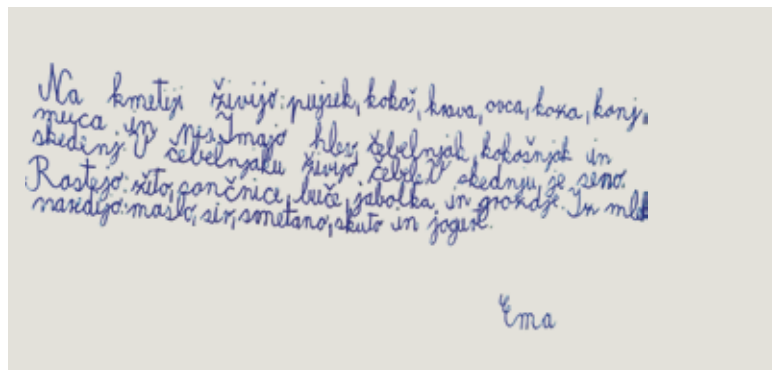 Na kmetiji živijo: pujsek, kokoš, krava, ovca, koza, konj,
muca in pes. Imajo hlev, čebelnjak, kokošnjak in
skedenj. V čebelnjaku živijo čebele. V skednju je seno.
Rastejo: žito, sončnice, buče, jabolka in grozdje. Iz mleka
naredijo: maslo, sir, smetano, skuto in jogurt.
Ema